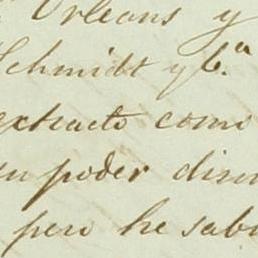 Orleans y
Schmidt y Cª
extracto como
su poder
pero he sab